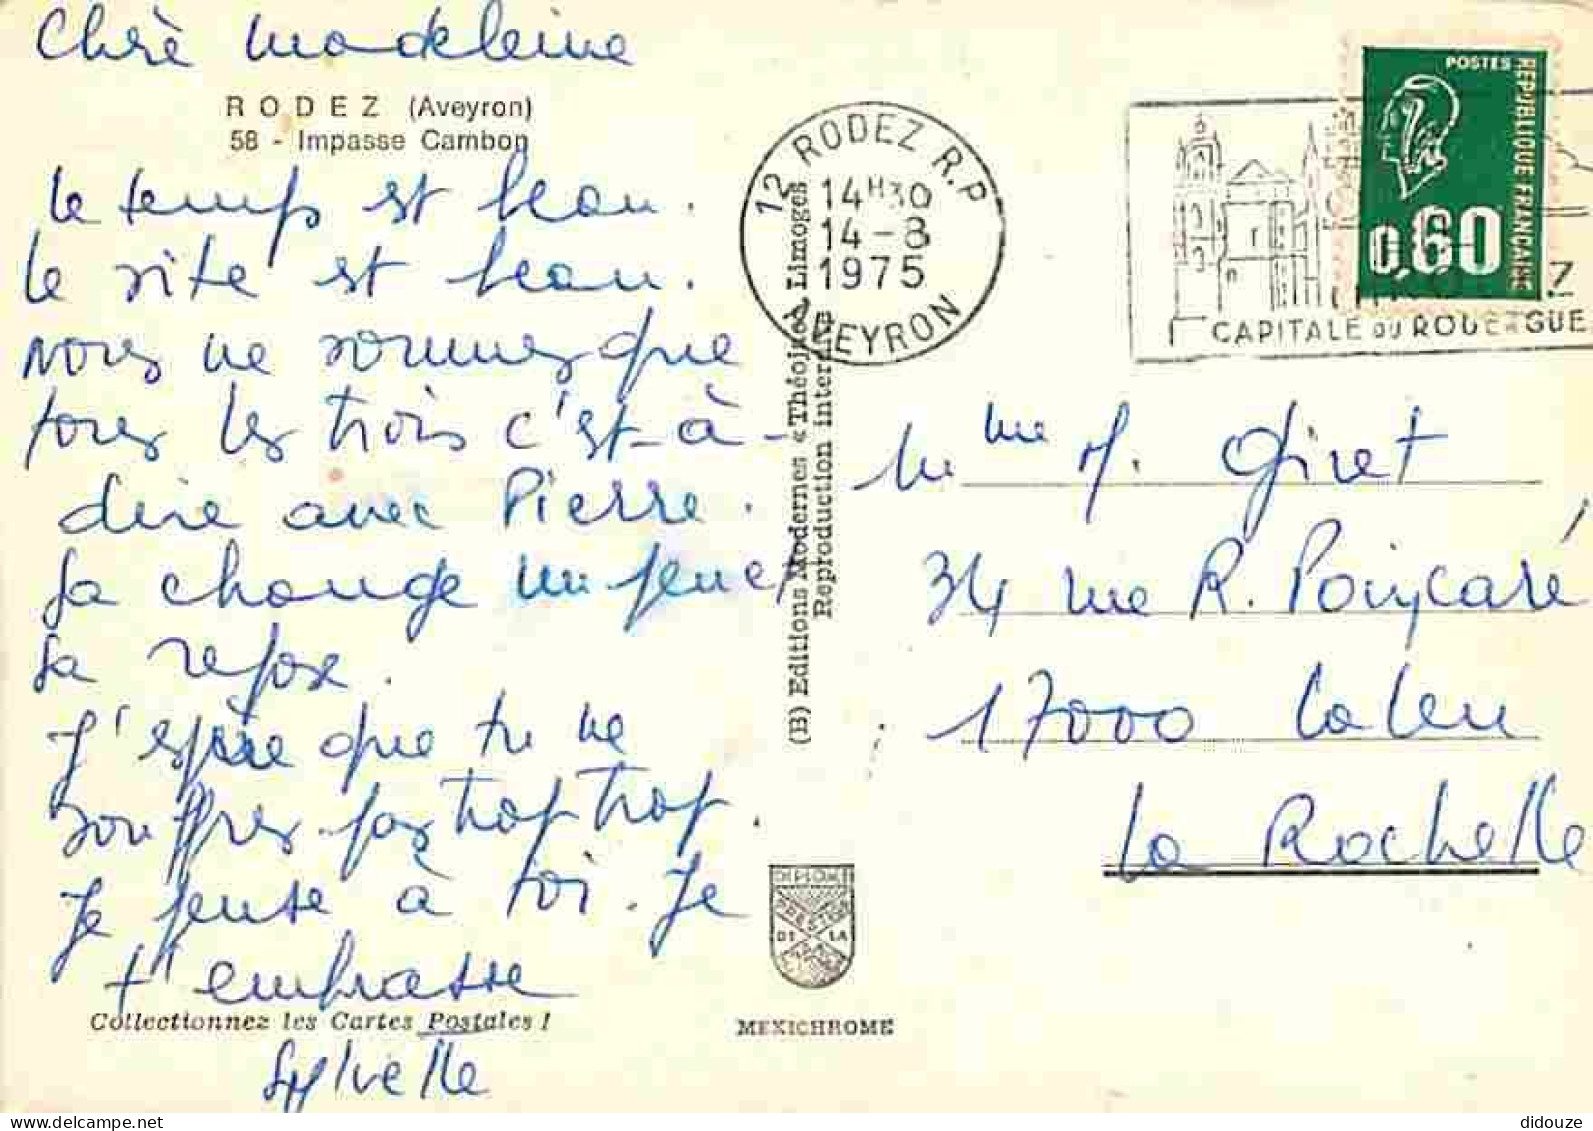 Chère Madeleine
RODEZ (Aveyron)
58 - Impasse Cambon
le temps est beau.
le site est beau.
nous ne sommes que
tous les trois c'est-à-
dire avec Pierre.
ça change un peu et
ça repose.
J'espère que tu ne
souffres pas trop trop
Je pense à toi. Je
t'embrasse
Collectionnez les Cartes Postales !
Sylvette
(B) Editions Modernes « Théojac », Limoges
Reproduction interdite
DIPLOME
PRESTIGE
DE LA
MEXICHROME
12 RODEZ R.P
14H30
14-8
1975
AVEYRON
CAPITALE DU ROUERGUE
POSTES
REPUBLIQUE FRANÇAISE
0,60
Mme M. Giret
34 rue R. Poincaré
17000 Laleu
La Rochelle
delcampe.net
didouze